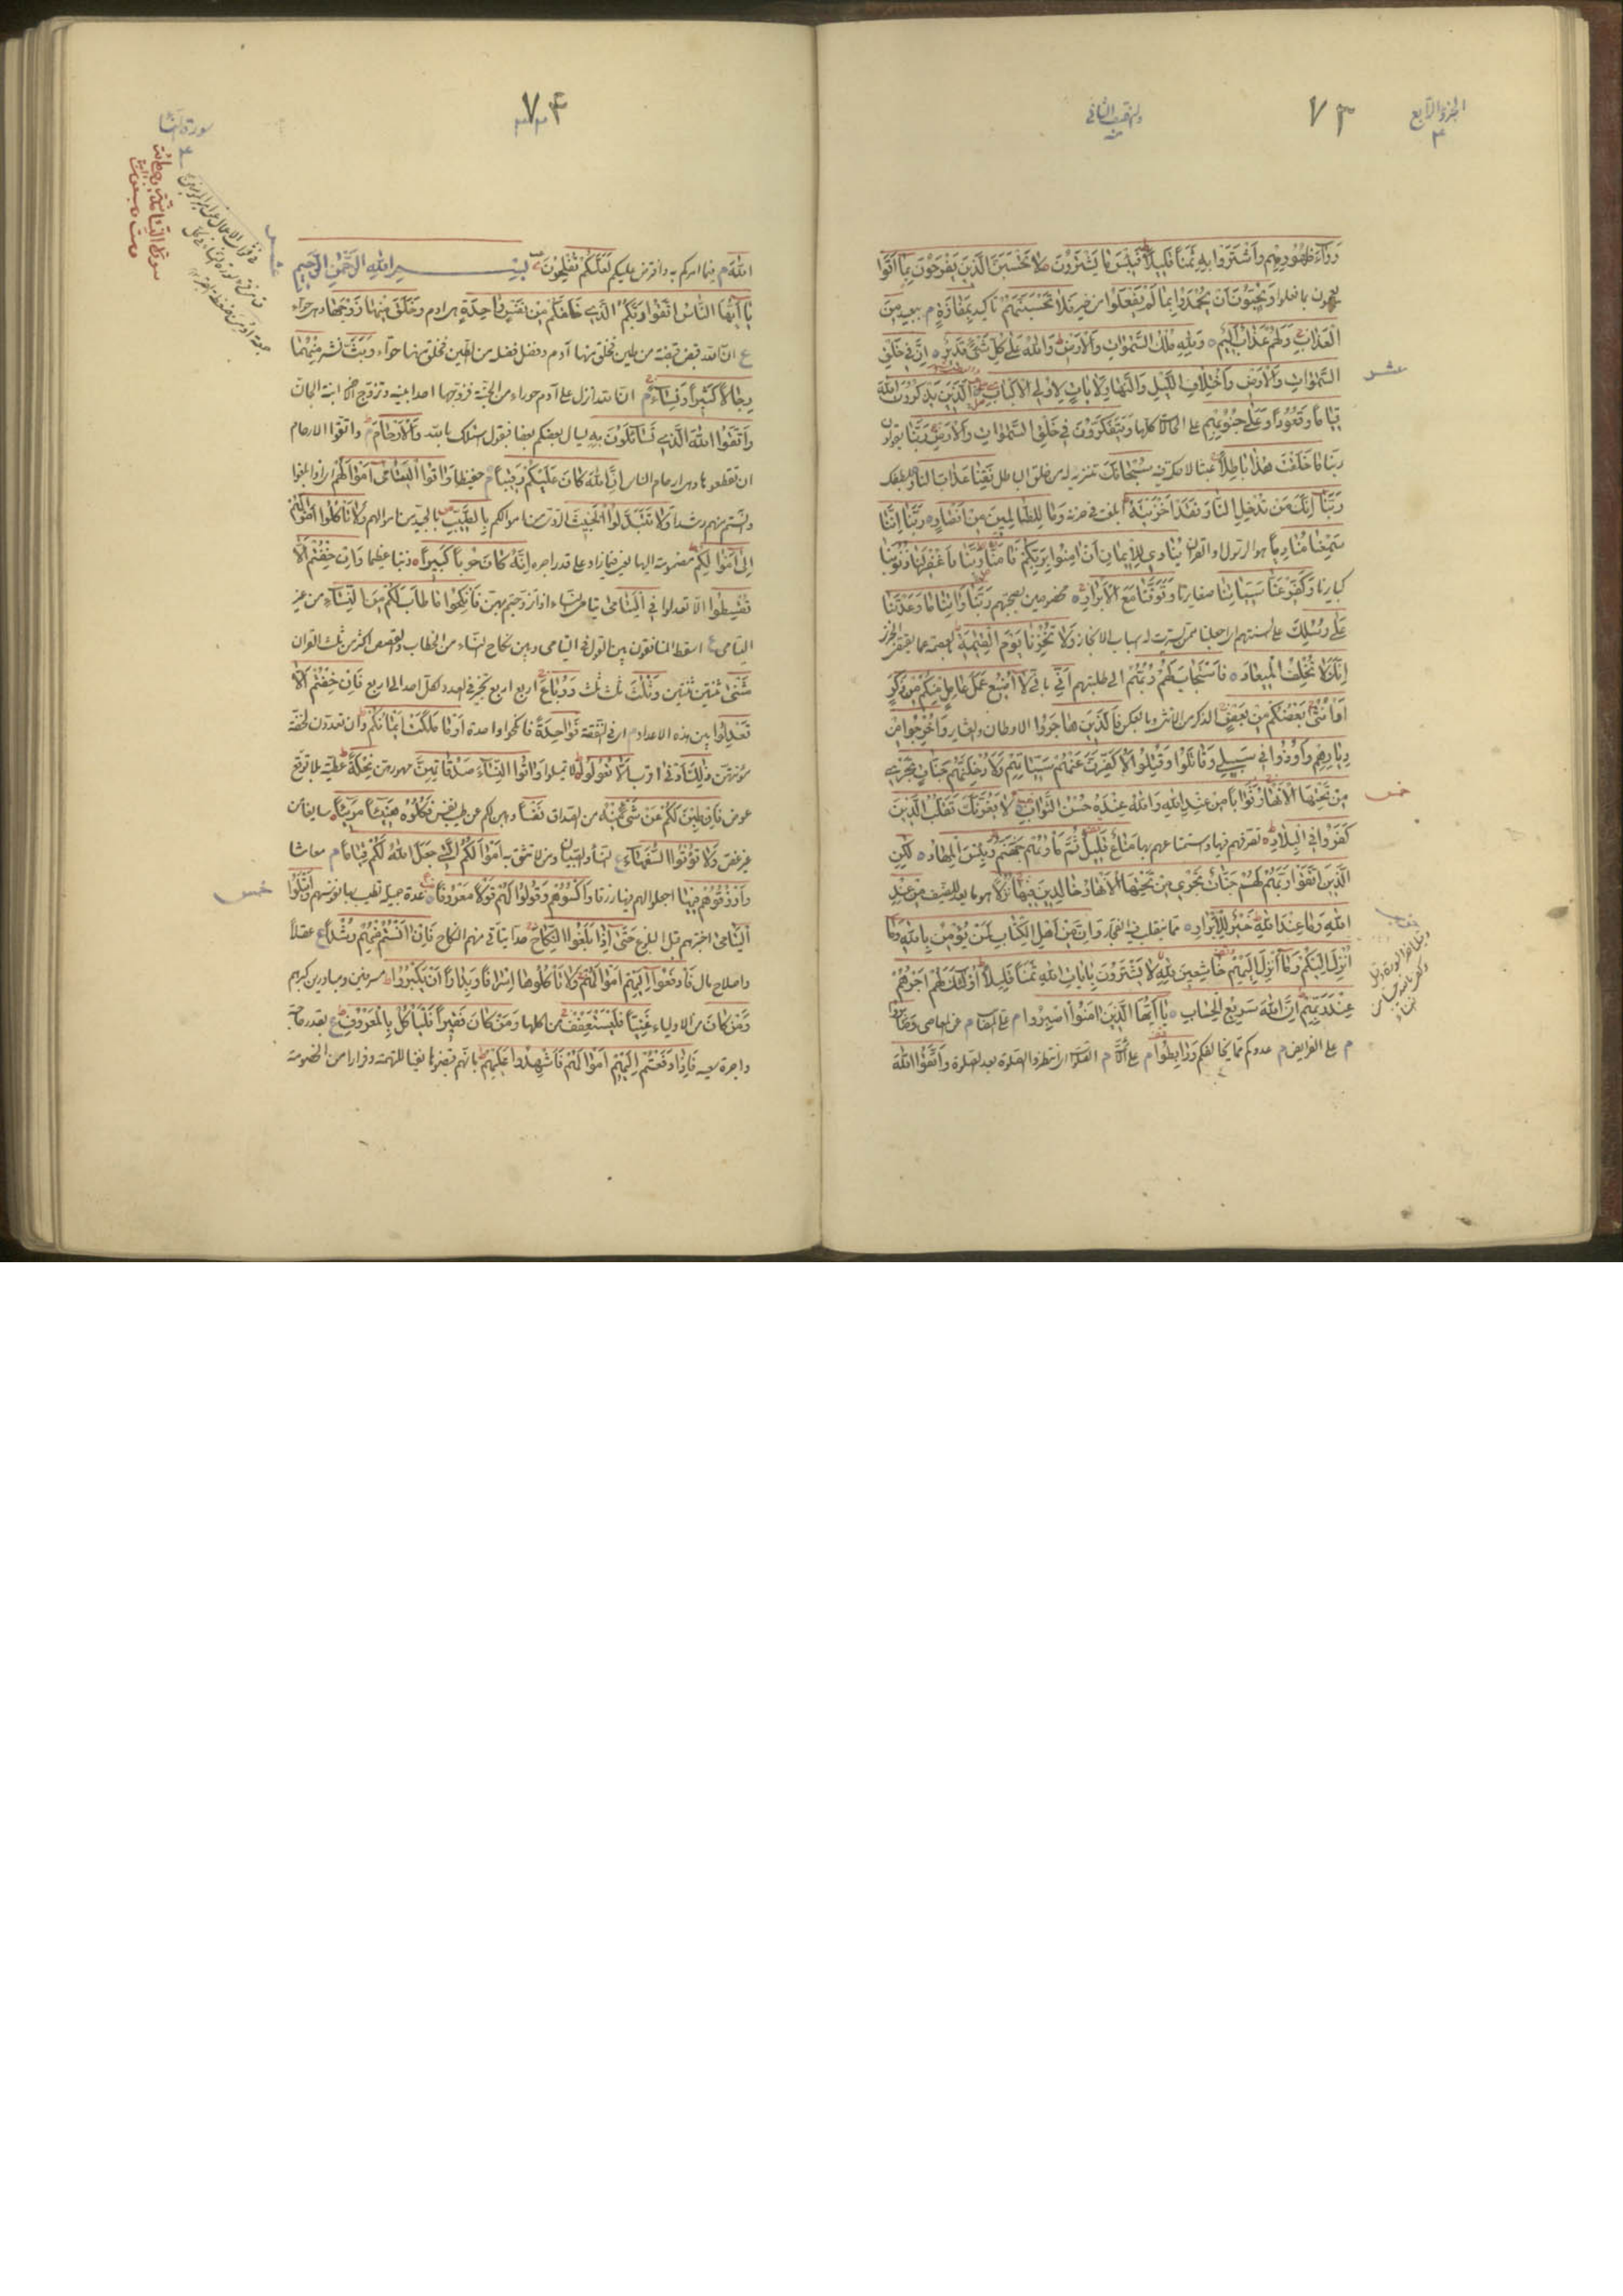 الجزؤ الرابع
٤
٧٣
وَرَآءَ ظُهُورِهِمْ وَاشْتَرَوْا بِهِ ثَمَناً قَلِيلاً فَبِئْسَ مَا يَشْتَرُونَ لَا تَحْسَبَنَّ الَّذِينَ يَفْرَحُونَ بِمَا اَتَوْا
يعجبون بما فعلوا وَيُحِبُّونَ اَنْ يُحْمَدُوا بِمَا لَمْ يَفْعَلُوا من خير فَلَا تَحْسَبَنَّهُمْ تاكيد بِمَفَازَةٍ م ببعيد مِنَ
الْعَذَابِ وَلَهُمْ عَذَابٌ اَلِيمٌ وَلِلّهِ مُلْكُ السَّمٰوَاتِ وَالْاَرْضِ وَاللهُ عَلَى كُلِّ شَيْءٍ قَدِيرٌ اِنَّ فِي خَلْقِ
السَّمٰوَاتِ وَالْاَرْضِ وَاخْتِلَافِ اللَّيْلِ وَالنَّهَارِ لَاٰيَاتٍ لِاُولِي الْاَلْبَابِ الَّذِينَ يَذْكُرُونَ اللهَ
عشر
قِيَاماً وَقُعُوداً وَعَلَى جُنُوبِهِمْ على الحالات كلها وَيَتَفَكَّرُونَ فِي خَلْقِ السَّمٰوَاتِ وَالْاَرْضِ رَبَّنَا يقولون
ربنا مَا خَلَقْتَ هٰذَا بَاطِلاً عبثا لا حكمة فيه سُبْحَانَكَ تنزيه له من خلق الباطل فَقِنَا عَذَابَ النَّارِ بلطفك
رَبَّنَا اِنَّكَ مَنْ تُدْخِلِ النَّارَ فَقَدْ اَخْزَيْتَهُ ابلغت في خزيه وَمَا لِلظَّالِمِينَ مِنْ اَنْصَارٍ رَبَّنَا اِنَّنَا
سَمِعْنَا مُنَادِياً هو الرسول او القران يُنَادِي لِلْاِيمَانِ اَنْ اٰمِنُوا بِرَبِّكُمْ فَاٰمَنَّا رَبَّنَا فَاغْفِرْ لَنَا ذُنُوبَنَا
كبايرنا وَكَفِّرْ عَنَّا سَيِّئَاتِنَا صغايرنا وَتَوَفَّنَا مَعَ الْاَبْرَارِ مخصوصين بصحبتهم رَبَّنَا وَاٰتِنَا مَا وَعَدْتَنَا
عَلَى رُسُلِكَ على السنتهم وَلَا تُخْزِنَا يَوْمَ الْقِيٰمَةِ
اِنَّكَ لَا تُخْلِفُ الْمِيعَادَ فَاسْتَجَابَ لَهُمْ رَبُّهُمْ الى طلبتهم اَنِّي باني لَا اُضِيعُ عَمَلَ عَامِلٍ مِنْكُمْ مِنْ ذَكَرٍ
اَوْ اُنْثٰى بَعْضُكُمْ مِنْ بَعْضٍ الذكر من الانثى وبالعكس فَالَّذِينَ هَاجَرُوا الاوطان والعشاير وَاُخْرِجُوا مِنْ
دِيَارِهِمْ وَاُوذُوا فِي سَبِيلِي وَقَاتَلُوا وَقُتِلُوا لَاُكَفِّرَنَّ عَنْهُمْ سَيِّئَاتِهِمْ وَلَاُدْخِلَنَّهُمْ جَنَّاتٍ تَجْرِي
مِنْ تَحْتِهَا الْاَنْهَارُ ثَوَاباً مِنْ عِنْدِ اللهِ وَاللهُ عِنْدَهُ حُسْنُ الثَّوَابِ لَا يَغُرَّنَّكَ تَقَلُّبُ الَّذِينَ
خمس
كَفَرُوا فِي الْبِلَادِ تصرفهم فيها واستمتاعهم بها مَتَاعٌ قَلِيلٌ ثُمَّ مَأْوٰيهُمْ جَهَنَّمُ وَبِئْسَ الْمِهَادُ لٰكِنِ
الَّذِينَ اتَّقَوْا رَبَّهُمْ لَهُمْ جَنَّاتٌ تَجْرِي مِنْ تَحْتِهَا الْاَنْهَارُ خَالِدِينَ فِيهَا نُزُلاً هو ما يعد للضيف مِنْ عِنْدِ
اللهِ وَمَا عِنْدَ اللهِ خَيْرٌ لِلْاَبْرَارِ مما يتقلب فيه الفجار وَاِنَّ مِنْ اَهْلِ الْكِتَابِ لَمَنْ يُؤْمِنُ بِاللهِ وَمَا
اُنْزِلَ اِلَيْكُمْ وَمَا اُنْزِلَ اِلَيْهِمْ خَاشِعِينَ لِلّهِ لَا يَشْتَرُونَ بِاٰيَاتِ اللهِ ثَمَناً قَلِيلاً اُولٰئِكَ لَهُمْ اَجْرُهُمْ
عِنْدَ رَبِّهِمْ اِنَّ اللهَ سَرِيعُ الْحِسَابِ يَا اَيُّهَا الَّذِينَ اٰمَنُوا اصْبِرُوا م على المصايب م عن المعاصي وَصَابِرُوا
م على الفرايض م عدوكم مما يخالفكم وَرَابِطُوا م على الائمة م الصلوات انتظروا الصلوة بعد الصلوة وَاتَّقُوا اللهَ
٧٤
سورة النسا
٤
سورة النساء مائة
وست وسبعون
اللهَ م فيما امركم به وافترض عليكم لَعَلَّكُمْ تُفْلِحُونَ بِسْمِ اللهِ الرَّحْمٰنِ الرَّحِيمِ
يَا اَيُّهَا النَّاسُ اتَّقُوا رَبَّكُمُ الَّذِي خَلَقَكُمْ مِنْ نَفْسٍ وَاحِدَةٍ هو ادم وَخَلَقَ مِنْهَا زَوْجَهَا وهي حواء
ع ان الله قبض قبضة من طين فخلق منها آدم وفضل فضلة من الطين فخلق منها حواء وَبَثَّ نشر مِنْهُمَا
رِجَالاً كَثِيراً وَنِسَاءً م ان الله انزل على آدم حوراء من الجنة فزوجها احد ابنيه وتزوج الاخر ابنة الجان
وَاتَّقُوا اللهَ الَّذِي تَسَاءَلُونَ بِهِ يسال بعضكم بعضا فيقول اسئلك بالله وَالْاَرْحَامَ م واتقوا الارحام
ان تقطعوها وهي ارحام الناس اِنَّ اللهَ كَانَ عَلَيْكُمْ رَقِيباً م حفيظا وَاٰتُوا الْيَتَامٰى اَمْوَالَهُمْ اذا بلغوا
وانستم منهم رشدا وَلَا تَتَبَدَّلُوا الْخَبِيثَ الردي من اموالكم بِالطَّيِّبِ بالجيد من اموالهم وَلَا تَأْكُلُوا اَمْوَالَهُمْ
اِلٰى اَمْوَالِكُمْ مضمومة اليها يعني فيما زاد على قدر اجره اِنَّهُ كَانَ حُوباً كَبِيراً ذنبا عظيما وَاِنْ خِفْتُمْ اَلَّا
تُقْسِطُوا الا تعدلوا فِي الْيَتَامٰى يتامى النساء اذا تزوجتم بهن فَانْكِحُوا مَا طَابَ لَكُمْ مِنَ النِّسَاءِ من غير
اليتامى ع اسقط المنافقون بين القول في اليتامى وبين نكاح النساء من الخطاب والقصص اكثر من ثلث القران
مَثْنٰى ثنتين ثنتين وَثُلٰثَ ثلث ثلث وَرُبَاعَ اربع اربع تخير في العدد لكل احد الى اربع فَاِنْ خِفْتُمْ اَلَّا
تَعْدِلُوا بين هذه الاعداد م في النفقة فَوَاحِدَةً فانكحوا واحدة اَوْ مَا مَلَكَتْ اَيْمَانُكُمْ وان تعددن لخفة
مؤنتهن ذٰلِكَ اَدْنٰى اقرب اَلَّا تَعُولُوا لا تميلوا وَاٰتُوا النِّسَاءَ صَدُقَاتِهِنَّ مهورهن نِحْلَةً عطية بلا توقع
عوض فَاِنْ طِبْنَ لَكُمْ عَنْ شَيْءٍ مِنْهُ من الصداق نَفْساً وهبن لكم عن طيب نفس فَكُلُوهُ هَنِيئاً مَرِيئاً سايغا من
غير غصص وَلَا تُؤْتُوا السُّفَهَاءَ ع النساء والصبيان ومن لا تثق به اَمْوَالَكُمُ الَّتِي جَعَلَ اللهُ لَكُمْ قِيَاماً م معاشا
وَارْزُقُوهُمْ فِيهَا اجعلوا لهم فيها رزقا وَاكْسُوهُمْ وَقُولُوا لَهُمْ قَوْلاً مَعْرُوفاً عدة جميلة تطيب بها نفوسهم وَابْتَلُوا
خمس
الْيَتَامٰى اختبرهم قبل البلوغ حَتّٰى اِذَا بَلَغُوا النِّكَاحَ حدا يتاتى منهم النكاح فَاِنْ اٰنَسْتُمْ مِنْهُمْ رُشْداً ع عقلاً
واصلاح مال فَادْفَعُوا اِلَيْهِمْ اَمْوَالَهُمْ وَلَا تَأْكُلُوهَا اِسْرَافاً وَبِدَاراً اَنْ يَكْبَرُوا مسرفين ومبادرين كبرهم
وَمَنْ كَانَ من الاولياء غَنِيّاً فَلْيَسْتَعْفِفْ من اكلها وَمَنْ كَانَ فَقِيراً فَلْيَأْكُلْ بِالْمَعْرُوفِ ع بقدر حاجته
واجرة سعيه فَاِذَا دَفَعْتُمْ اِلَيْهِمْ اَمْوَالَهُمْ فَاَشْهِدُوا عَلَيْهِمْ بانهم قبضوها نفيا للتهمة وفرارا من الخصومة